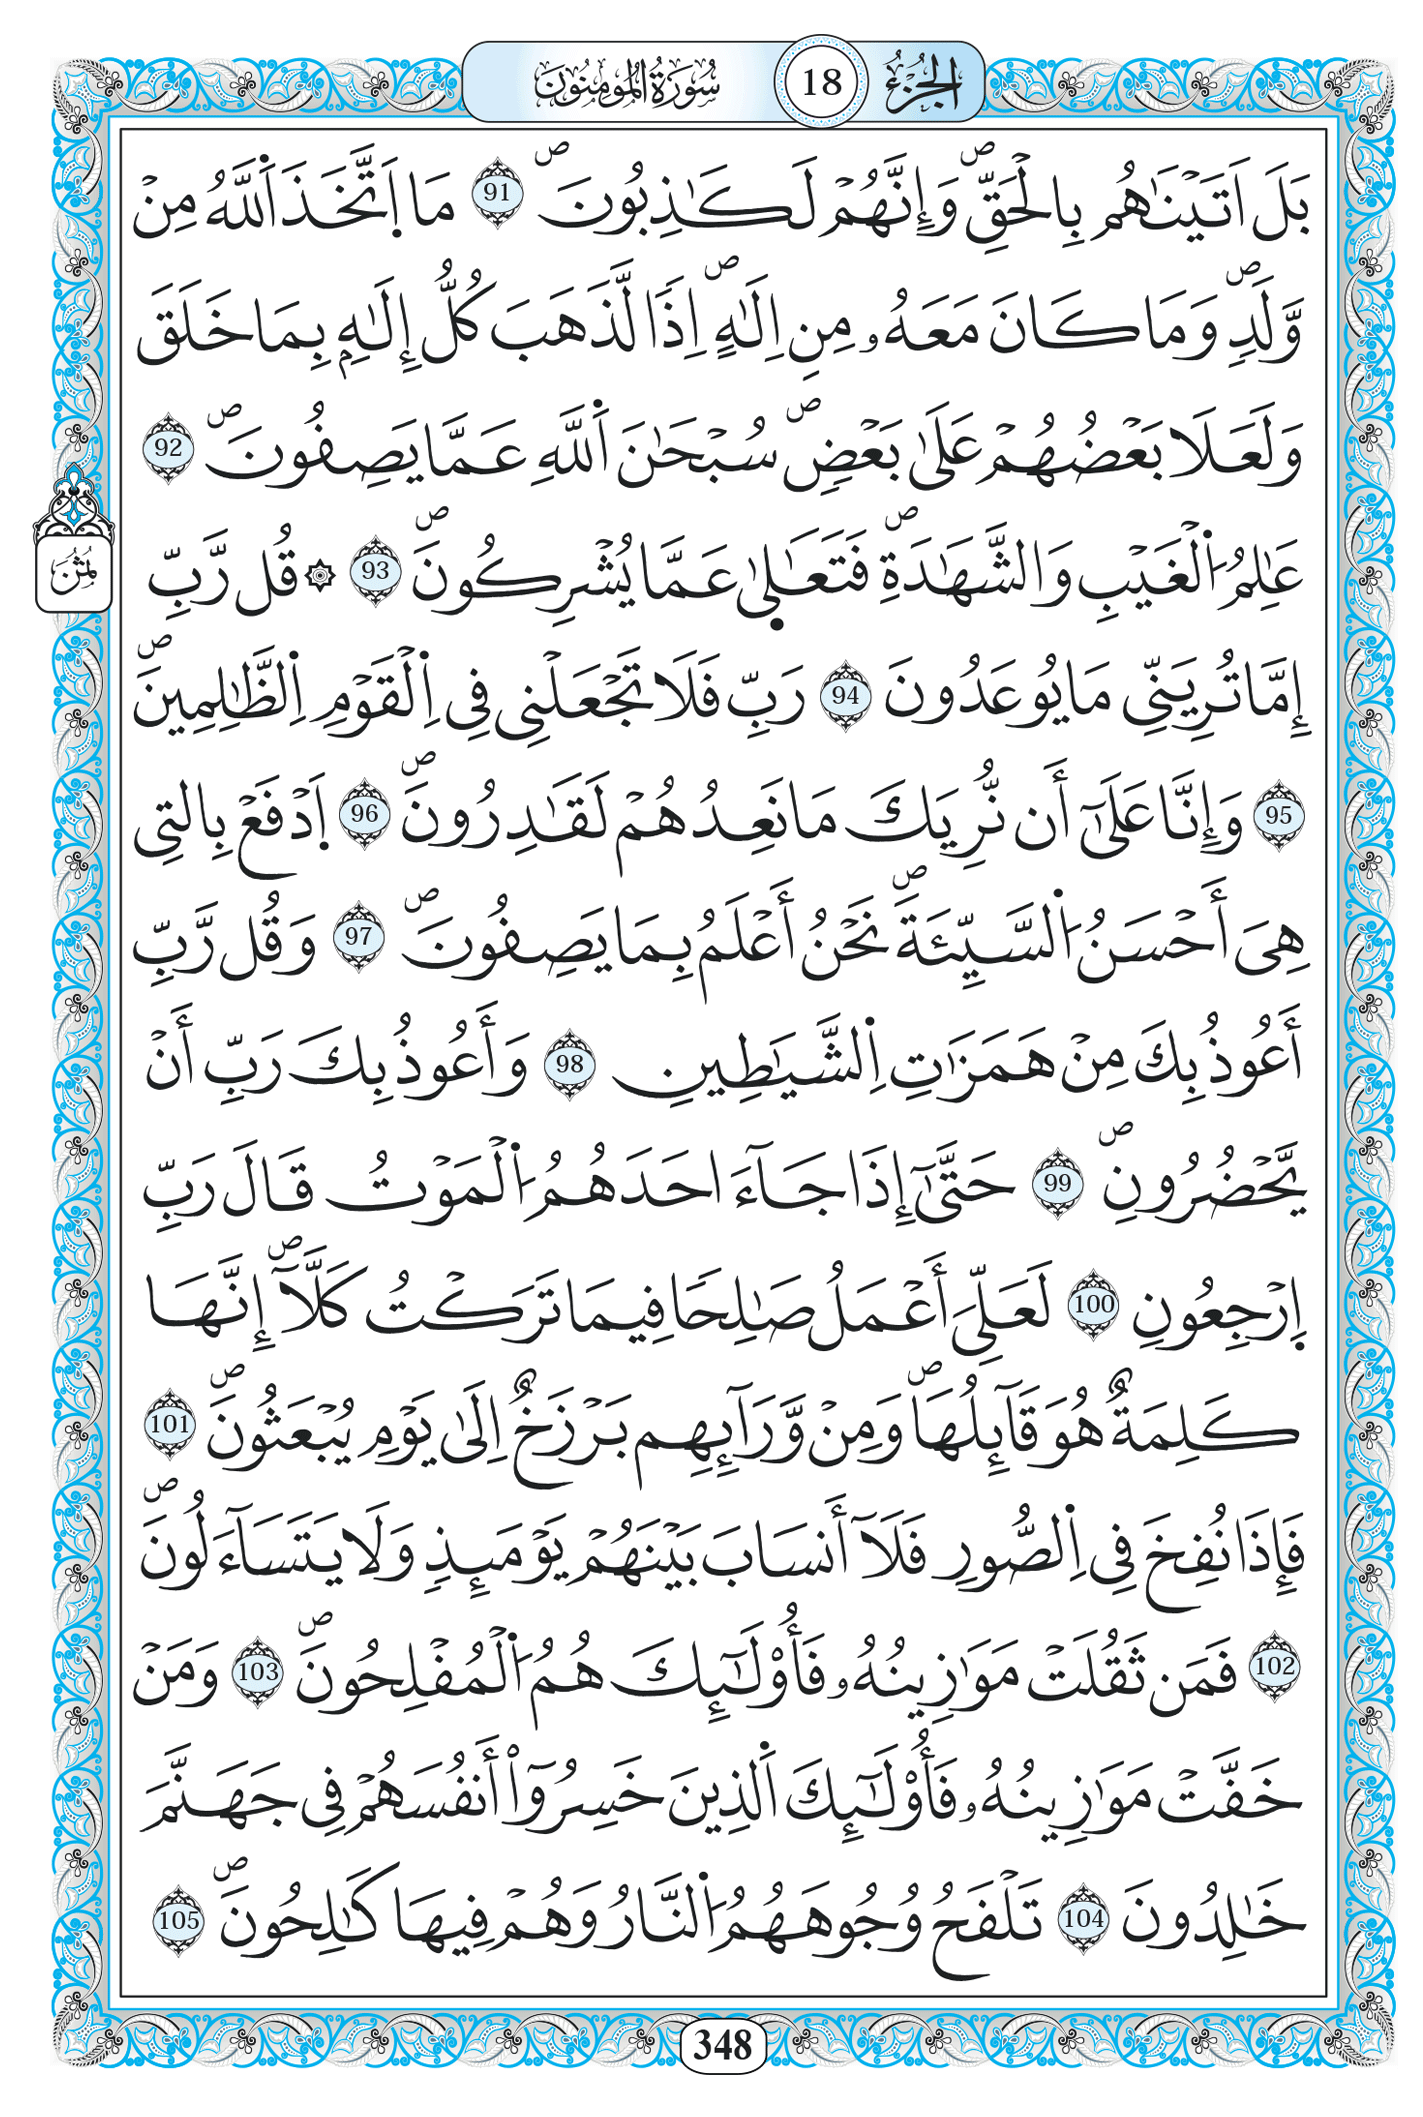 الجزء 18 سورة المومنون
بَلَ اَتَيْنَٰهُم بِالْحَقِّۖ وَإِنَّهُمْ لَكَٰذِبُونَۖ 91 مَا اَ۪تَّخَذَ اَ۬للَّهُ مِنْ
وَّلَدٖۖ وَمَا كَانَ مَعَهُۥ مِنِ اِلَٰهٍۖ اِذَا لَّذَهَبَ كُلُّ إِلَٰهِۢ بِمَا خَلَقَ
وَلَعَلَا بَعْضُهُمْ عَلَىٰ بَعْضٖۖ سُبْحَٰنَ اَ۬للَّهِ عَمَّا يَصِفُونَۖ 92
عَٰلِمُ اُ۬لْغَيْبِ وَالشَّهَٰدَةِۖ فَتَعَٰل۪يٰ عَمَّا يُشْرِكُونَۖ 93 ۞ قُل رَّبِّ
إِمَّا تُرِيَنِّي مَا يُوعَدُونَ 94 رَبِّ فَلَا تَجْعَلْنِي فِي اِ۬لْقَوْمِ اِ۬لظَّٰلِمِينَۖ
95 وَإِنَّا عَلَىٰٓ أَن نُّرِيَكَ مَا نَعِدُهُمْ لَقَٰدِرُونَۖ 96 اَ۪دْفَعْ بِالتِي
هِيَ أَحْسَنُ اُ۬لسَّيِّئَةَۖ نَحْنُ أَعْلَمُ بِمَا يَصِفُونَۖ 97 وَقُل رَّبِّ
أَعُوذُ بِكَ مِنْ هَمَزَٰتِ اِ۬لشَّيَٰطِينِ 98 وَأَعُوذُ بِكَ رَبِّ أَنْ
يَّحْضُرُونِۖ 99 حَتَّىٰٓ إِذَا جَآءَ احَدَهُمُ اُ۬لْمَوْتُ قَالَ رَبِّ
اِ۪رْجِعُونِ 100 لَعَلِّيَ أَعْمَلُ صَٰلِحاٗ فِيمَا تَرَكْتُ كَلَّآۖ إِنَّهَا
كَلِمَةٌ هُوَ قَآئِلُهَاۖ وَمِنْ وَّرَآئِهِم بَرْزَخٌ اِلَىٰ يَوْمِ يُبْعَثُونَۖ 101
فَإِذَا نُفِخَ فِي اِ۬لصُّورِ فَلَآ أَنسَابَ بَيْنَهُمْ يَوْمَئِذٖ وَلَا يَتَسَآءَلُونَۖ
102 فَمَن ثَقُلَتْ مَوَٰزِينُهُۥ فَأُوْلَٰٓئِكَ هُمُ اُ۬لْمُفْلِحُونَۖ 103 وَمَنْ
خَفَّتْ مَوَٰزِينُهُۥ فَأُوْلَٰٓئِكَ اَ۬لذِينَ خَسِرُوٓاْ أَنفُسَهُمْ فِي جَهَنَّمَ
خَٰلِدُونَ 104 تَلْفَحُ وُجُوهَهُمُ اُ۬لنَّارُ وَهُمْ فِيهَا كَٰلِحُونَۖ 105
ثُمُن
348